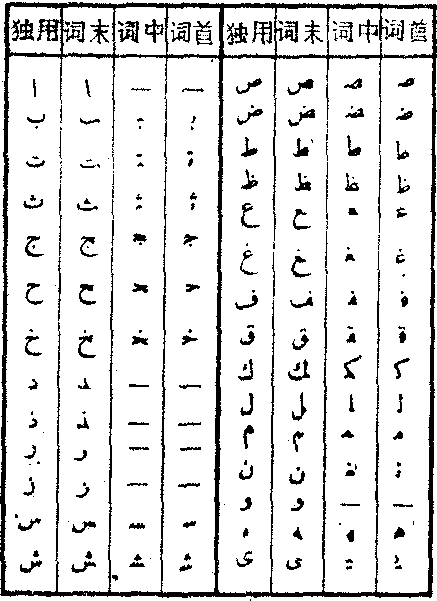 独用 词末 词中 词首 独用 词末 词中 词首
ا ـا — —
ب ـب ـبـ بـ
ت ـت ـتـ تـ
ث ـث ـثـ ثـ
ج ـج ـجـ جـ
ح ـح ـحـ حـ
خ ـخ ـخـ خـ
د ـد — —
ذ ـذ — —
ر ـر — —
ز ـز — —
س ـس ـسـ سـ
ش ـش ـشـ شـ
ص ـص ـصـ صـ
ض ـض ـضـ ضـ
ط ـط ـطـ طـ
ظ ـظ ـظـ ظـ
ع ـع ـعـ عـ
غ ـغ ـغـ غـ
ف ـف ـفـ فـ
ق ـق ـقـ قـ
ك ـك ـكـ كـ
ل ـل ـلـ لـ
م ـم ـمـ مـ
ن ـن ـنـ نـ
و ـو — —
ه ـه ـهـ هـ
ى ـى ـيـ يـ